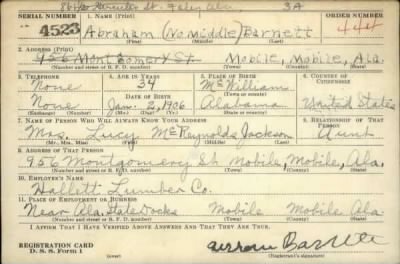 St. Ala 3A
SERIAL NUMBER 1. NAME (Print) ORDER NUMBER
4523 Abraham (No Middle) Barnett 444
2. ADDRESS (Print)
956 Montgomery St. Mobile, Mobile, Ala.
(Number and street or R. F. D. number) (Town) (County) (State)
3. TELEPHONE 4. AGE IN YEARS 5. PLACE OF BIRTH 6. COUNTRY OF CITIZENSHIP
None 34 McWilliam
DATE OF BIRTH
None Jan. 2, 1906 Alabama United States
7. NAME OF PERSON WHO WILL ALWAYS KNOW YOUR ADDRESS 8. RELATIONSHIP OF THAT PERSON
Mrs. Lucy McReynolds Jackson Aunt
(Mr., Mrs., Miss) (First) (Middle) (Last)
9. ADDRESS OF THAT PERSON
956 Montgomery St Mobile, Mobile, Ala.
(Number and street or R. F. D. number) (Town) (County) (State)
10. EMPLOYER'S NAME
Hallett Lumber Co.
11. PLACE OF EMPLOYMENT OR BUSINESS
Near Ala. State Docks Mobile Mobile Ala
(Number and street or R. F. D. number) (Town) (County) (State)
I AFFIRM THAT I HAVE VERIFIED ABOVE ANSWERS AND THAT THEY ARE TRUE.
REGISTRATION CARD
D. S. S. Form 1 (Registrant's signature)